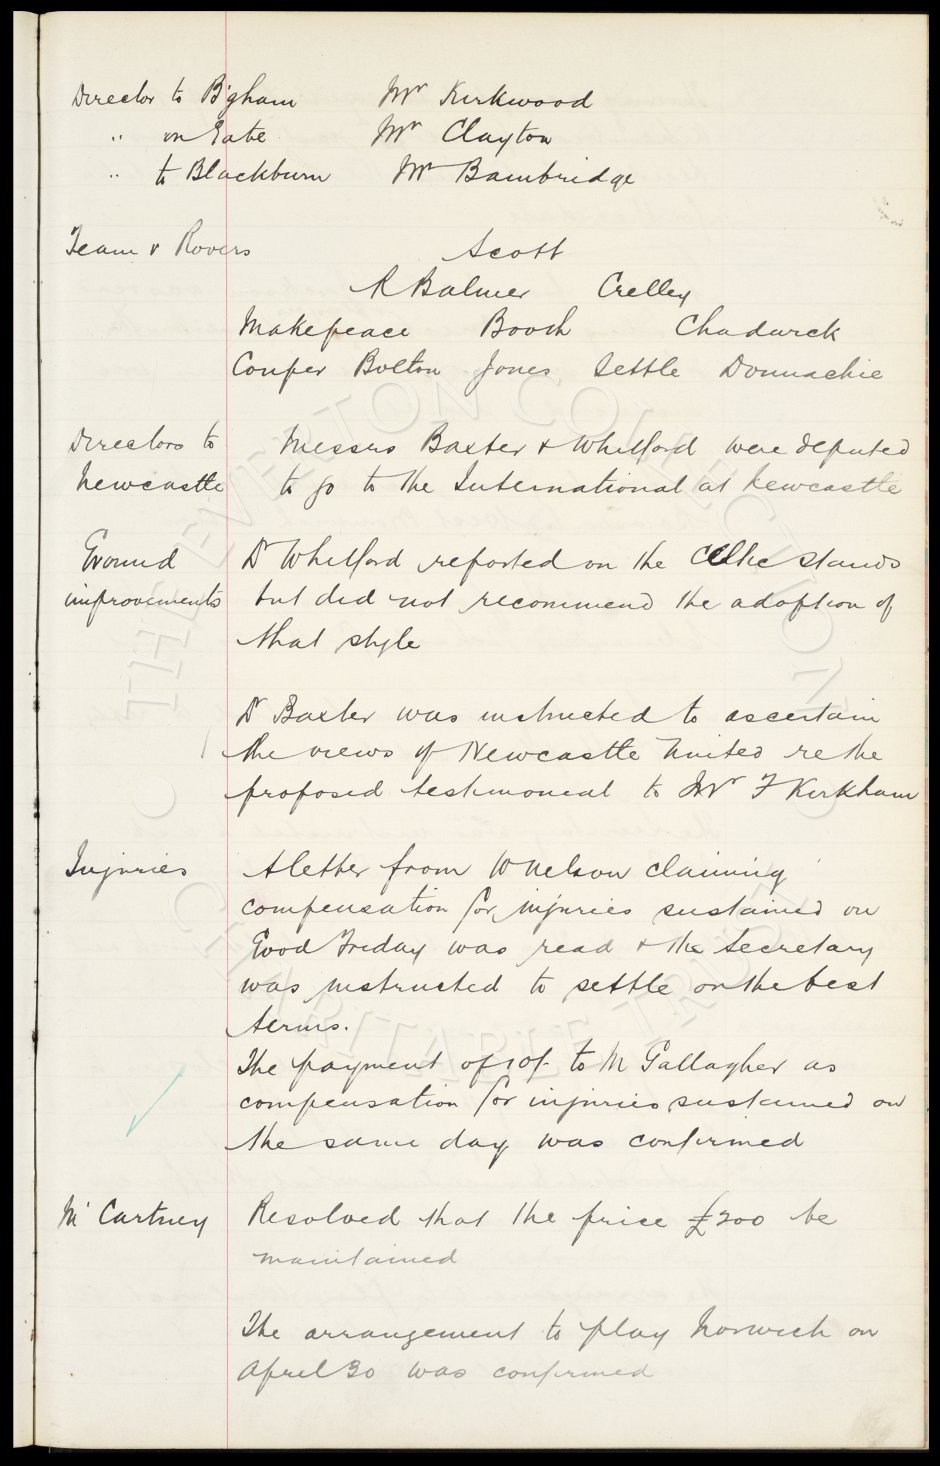 Director to B'gham Mr Kirkwood
" on Gate Mr Clayton
" to Blackburn Mr Bambridge
Team v Rovers Scott
R Balmer Crelley
Makepeace Booth Chadwick
Couper Bolton Jones Settle Donnachie
Directors to Messrs Baxter & Whitford were deputed
Newcastle to go to the International at Newcastle
Ground Dr Whitford reported on the Celtic stands
improvements but did not recommend the adoption of
that style
Dr Baxter was instructed to ascertain
the views of Newcastle United re the
proposed testimonial to Mr F Kirkham
Injuries A letter from W Nelson claiming
compensation for injuries sustained on
Good Friday was read & the Secretary
was instructed to settle on the best
terms.
The payment of 10/- to M Gallagher as
compensation for injuries sustained on
the same day was confirmed
McCartney Resolved that the price £200 be
maintained
The arrangement to play Norwich on
April 30 was confirmed
THE EVERTON COLLECTION
CHARITABLE TRUST